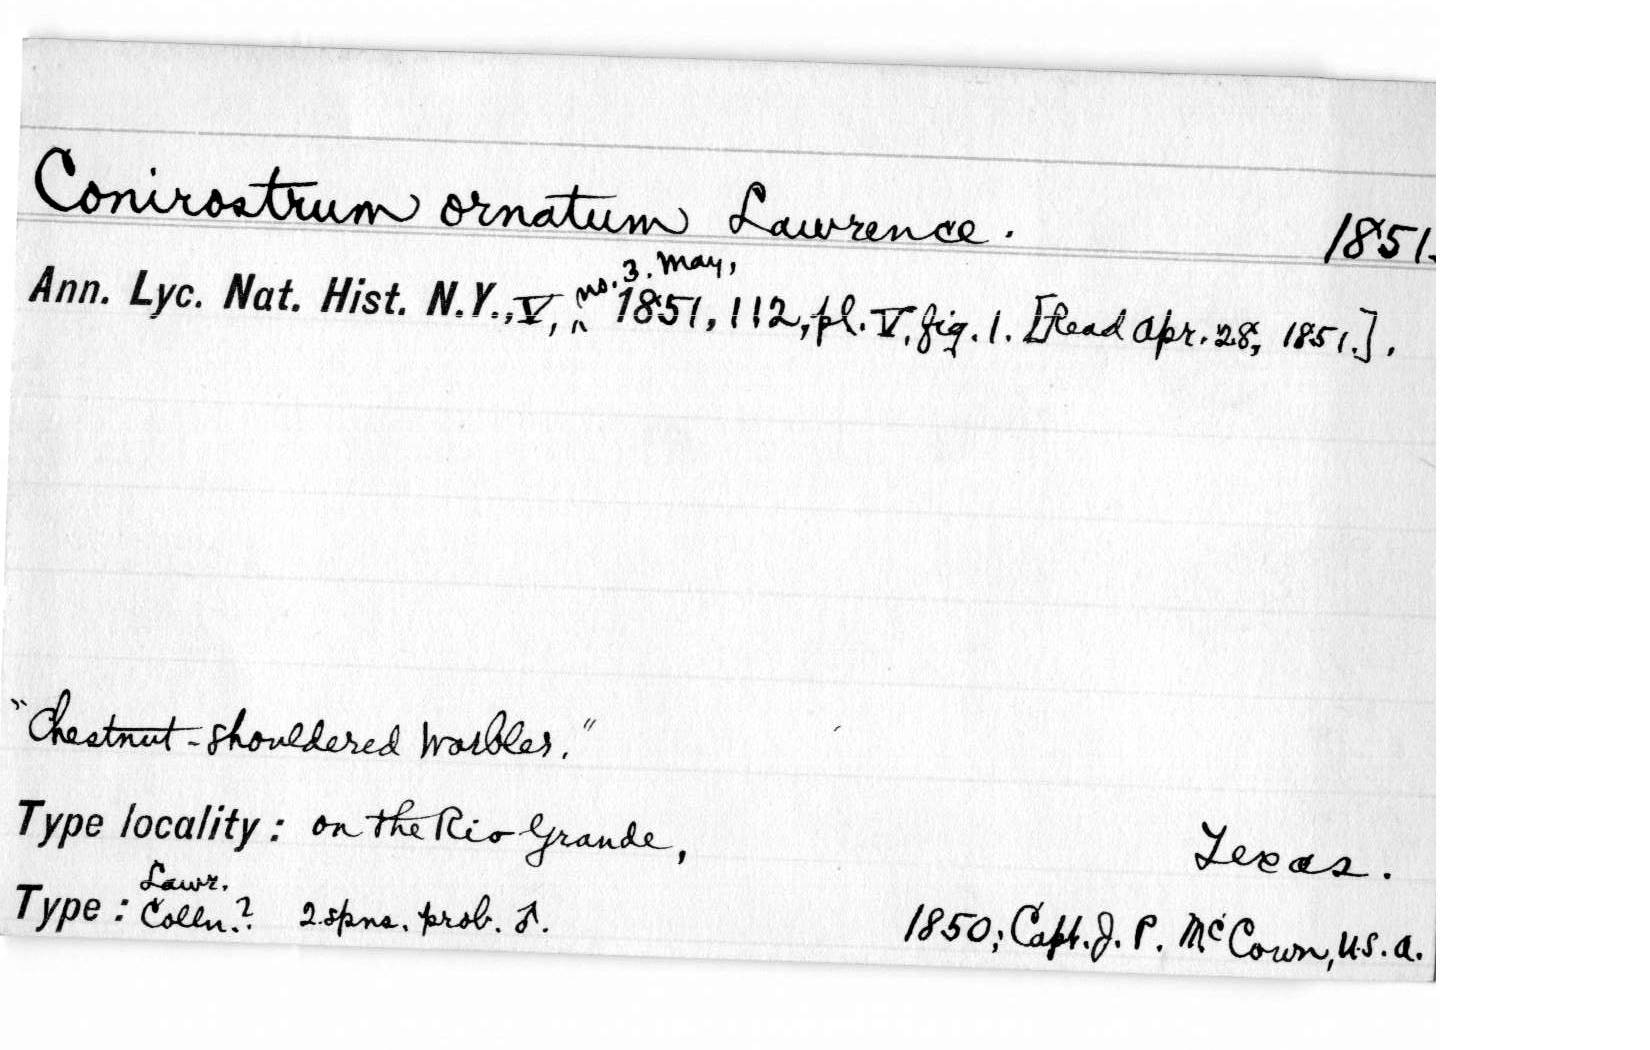 Conirostrum ornatum Lawrence. 1851.
Ann. Lyc. Nat. Hist. N.Y., V, no. 3. May, 1851, 112, pl. V, fig. 1. [Read Apr. 28, 1851.].
"Chestnut-shouldered Warbler."
Type locality: on the Rio Grande, Texas.
Type: Lawr. Colln.? 2 spns. prob. ♂. 1850; Capt. J. P. McCown, U.S.A.